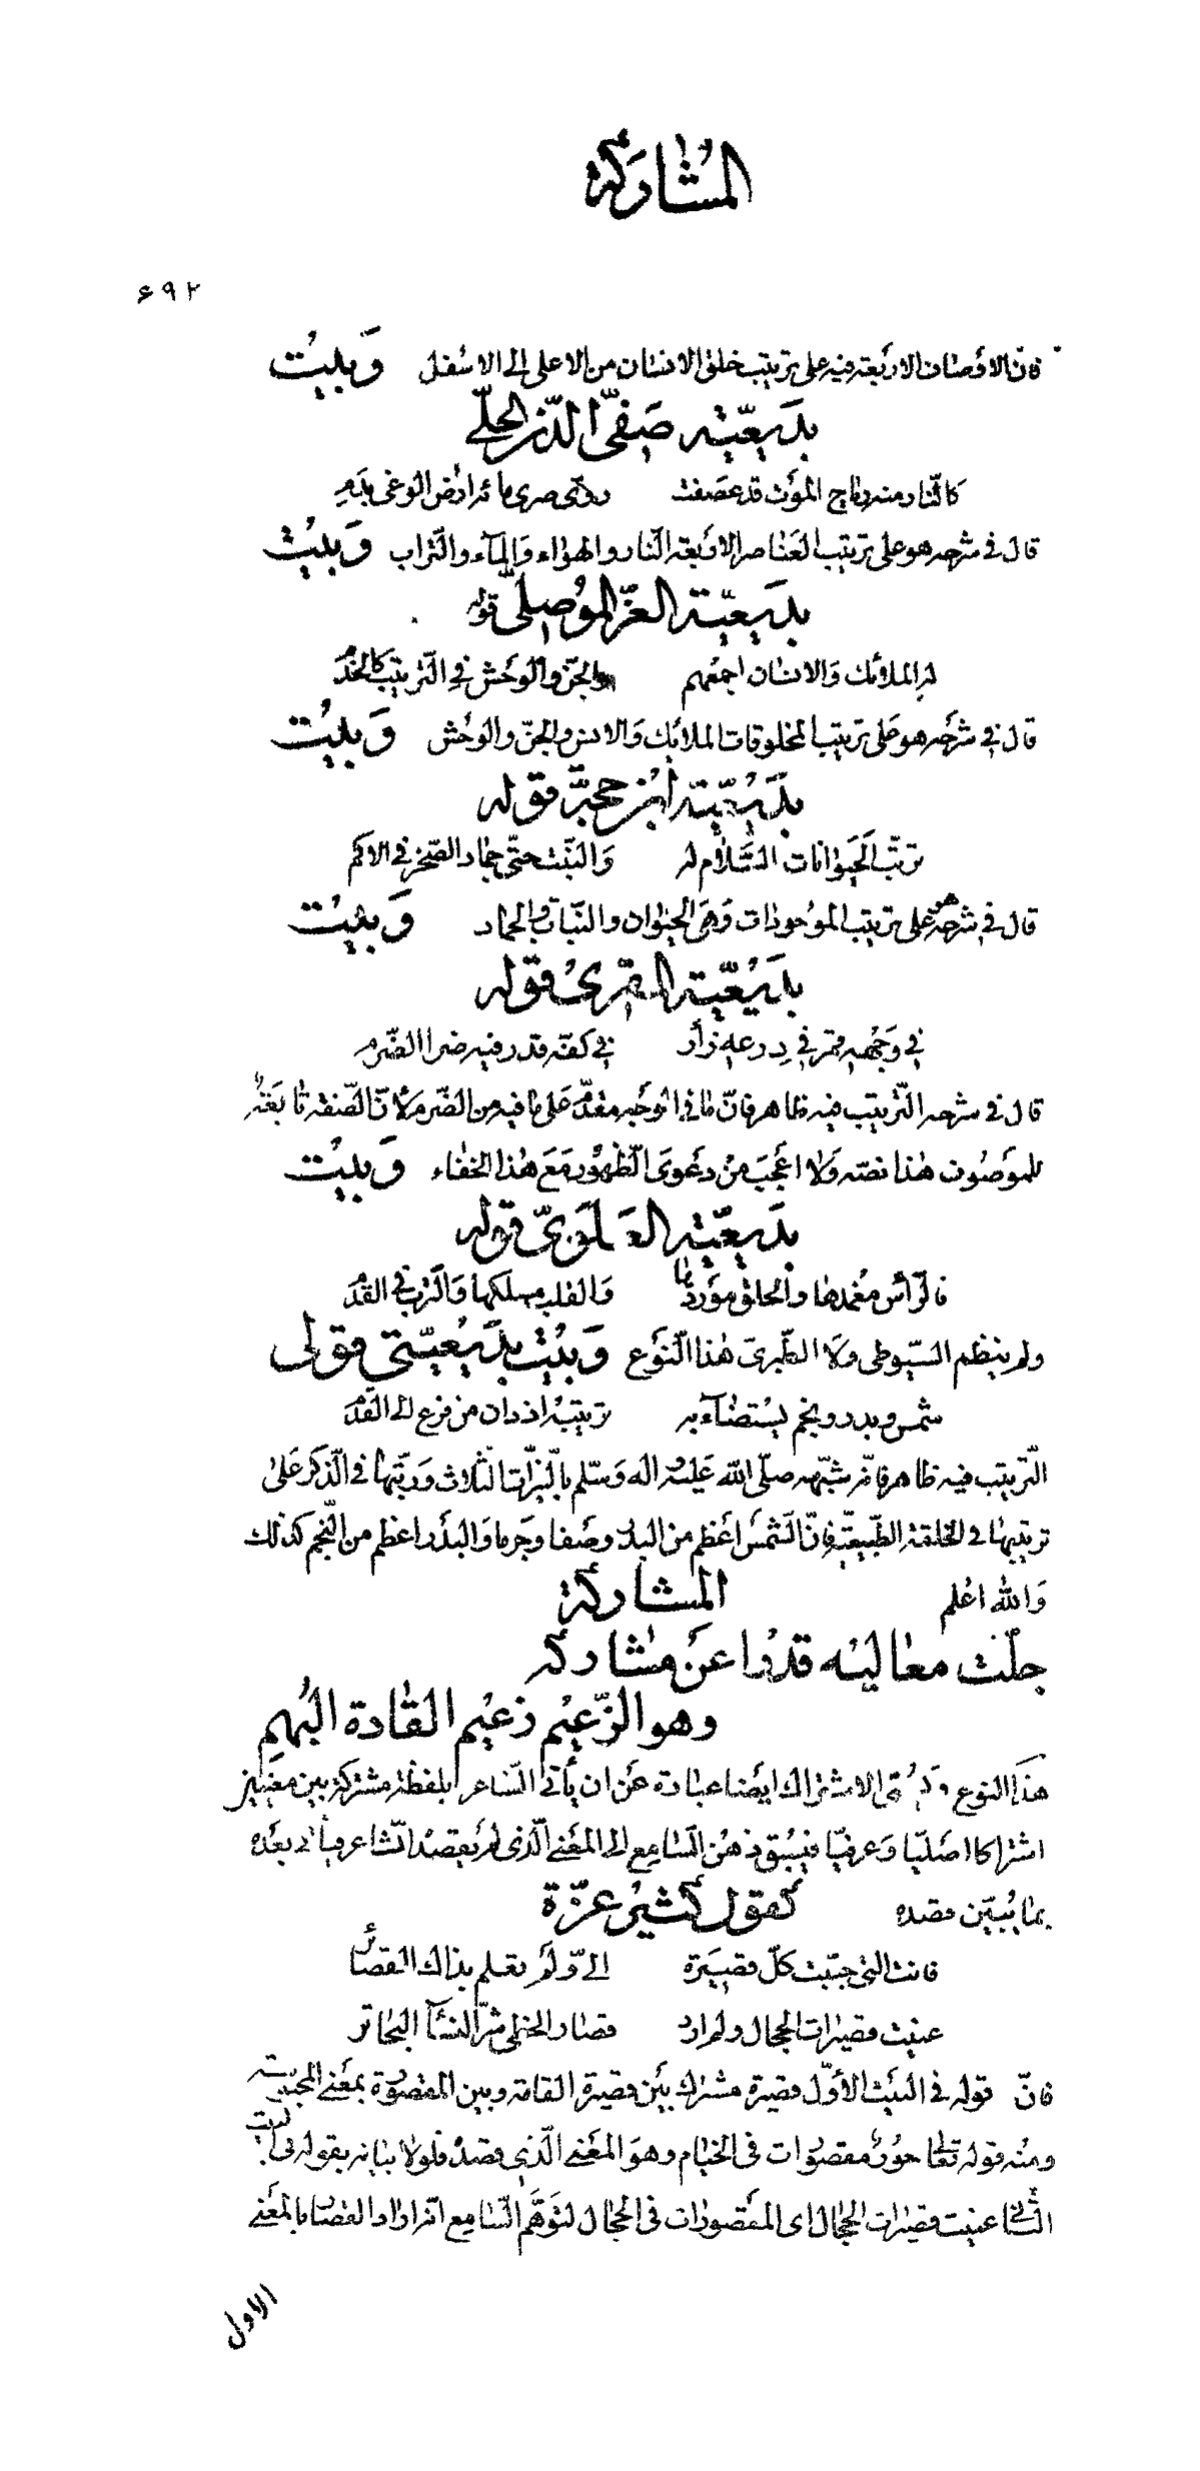 المشاركة
۶۹۲
فانّ الاوصاف الاربعة فيه على ترتيب خلق الانسان من الاعلى الى الاسفل وبيت
بديعيّة صفىّ الدّين الحلّى
كالنّار منه رياح الموت قد عصفت روّى صرى مائه ارض الوغى بدم
قال فى شرحه هو على ترتيب العناصر الاربعة النّار والهواء والمآء والتّراب وبيت
بديعيّة العزّ الموصلىّ قوله
له الملائك والانسان اجمعهم والجنّ والوحش فى التّرتيب كالخدم
قال فى شرحه هو على ترتيب المخلوقات الملائك والانس والجنّ والوحش وبيت
بديعيّة ابن حجّة قوله
ترتّب الحيوانات السّلام له والنّبت حتّى جماد الصّخر فى الاكم
قال فى شرحه هو على ترتيب الموجودات وهى الحيوان والنّبات والجماد وبيت
بديعيّة المقرى قوله
فى وجهه قمر فى درعه زأر فى كفّه قدر فيه ضرا الضّرم
قال فى شرحه التّرتيب فيه ظاهر فانّ ما فى الوجه مقدّم على ما فيه من الضّرم لانّ الصّفة تابعة
للموصوف هذا نصّه ولا اعجب من دعوى الظّهور مع هذا الخفاء وبيت
بديعيّة العلوىّ قوله
فالرّاس مغمدها والحلق موردها والقلب مسلكها والترب فى القدم
ولم ينظم السّيوطى ولا الطّبرى هذا النّوع وبيت بديعيّتي قولى
شمس وبدر ونجم يستضآء به ترتيبه ازدان من فرع الى القدم
التّرتيب فيه ظاهر فانّه شبّهه صلّى الله عليه وآله وسلّم بالنّيّرات الثّلاث ورتّبها فى الذّكر على
ترتيبها فى الخلقة الطّبيعيّة فانّ الشّمس اعظم من البدر وصفا وجرما والبدر اعظم من النّجم كذلك
والله اعلم المشاركة
جلّت معاليه قدرا عن مشاركة
وهو الزّعيم زعيم القادة البهم
هذا النوع ويسمّى الاشتراك ايضا عبارة عن ان يأتى الشّاعر بلفظة مشتركة بين معنيين
اشتراكا اصليّا وعرفيّا فيسبق ذهن السّامع الى المعنى الّذى لم يقصده الشّاعر فيأتى بعده
بما يبيّن قصده كقول كثير عزّة
فانت التى حبّبت كلّ قصيرة الىّ ولم تعلم بذاك القصائر
عنيت قصيرات الحجال ولم ارد قصار الخطى شرّ النسآ البحاتر
فانّ قوله فى البيت الاوّل قصيرة مشترك بين قصيرة القامة وبين المقصورة بمعنى المحبوسة
ومنه قوله تعالى حور مقصورات فى الخيام وهو المعنى الّذى قصده فلولا بيانه بقوله فى البيت
الثّانى عنيت قصيرات الحجال اى المقصورات فى الحجال لتوهّم السّامع انّه اراد القصار بالمعنى
الاول